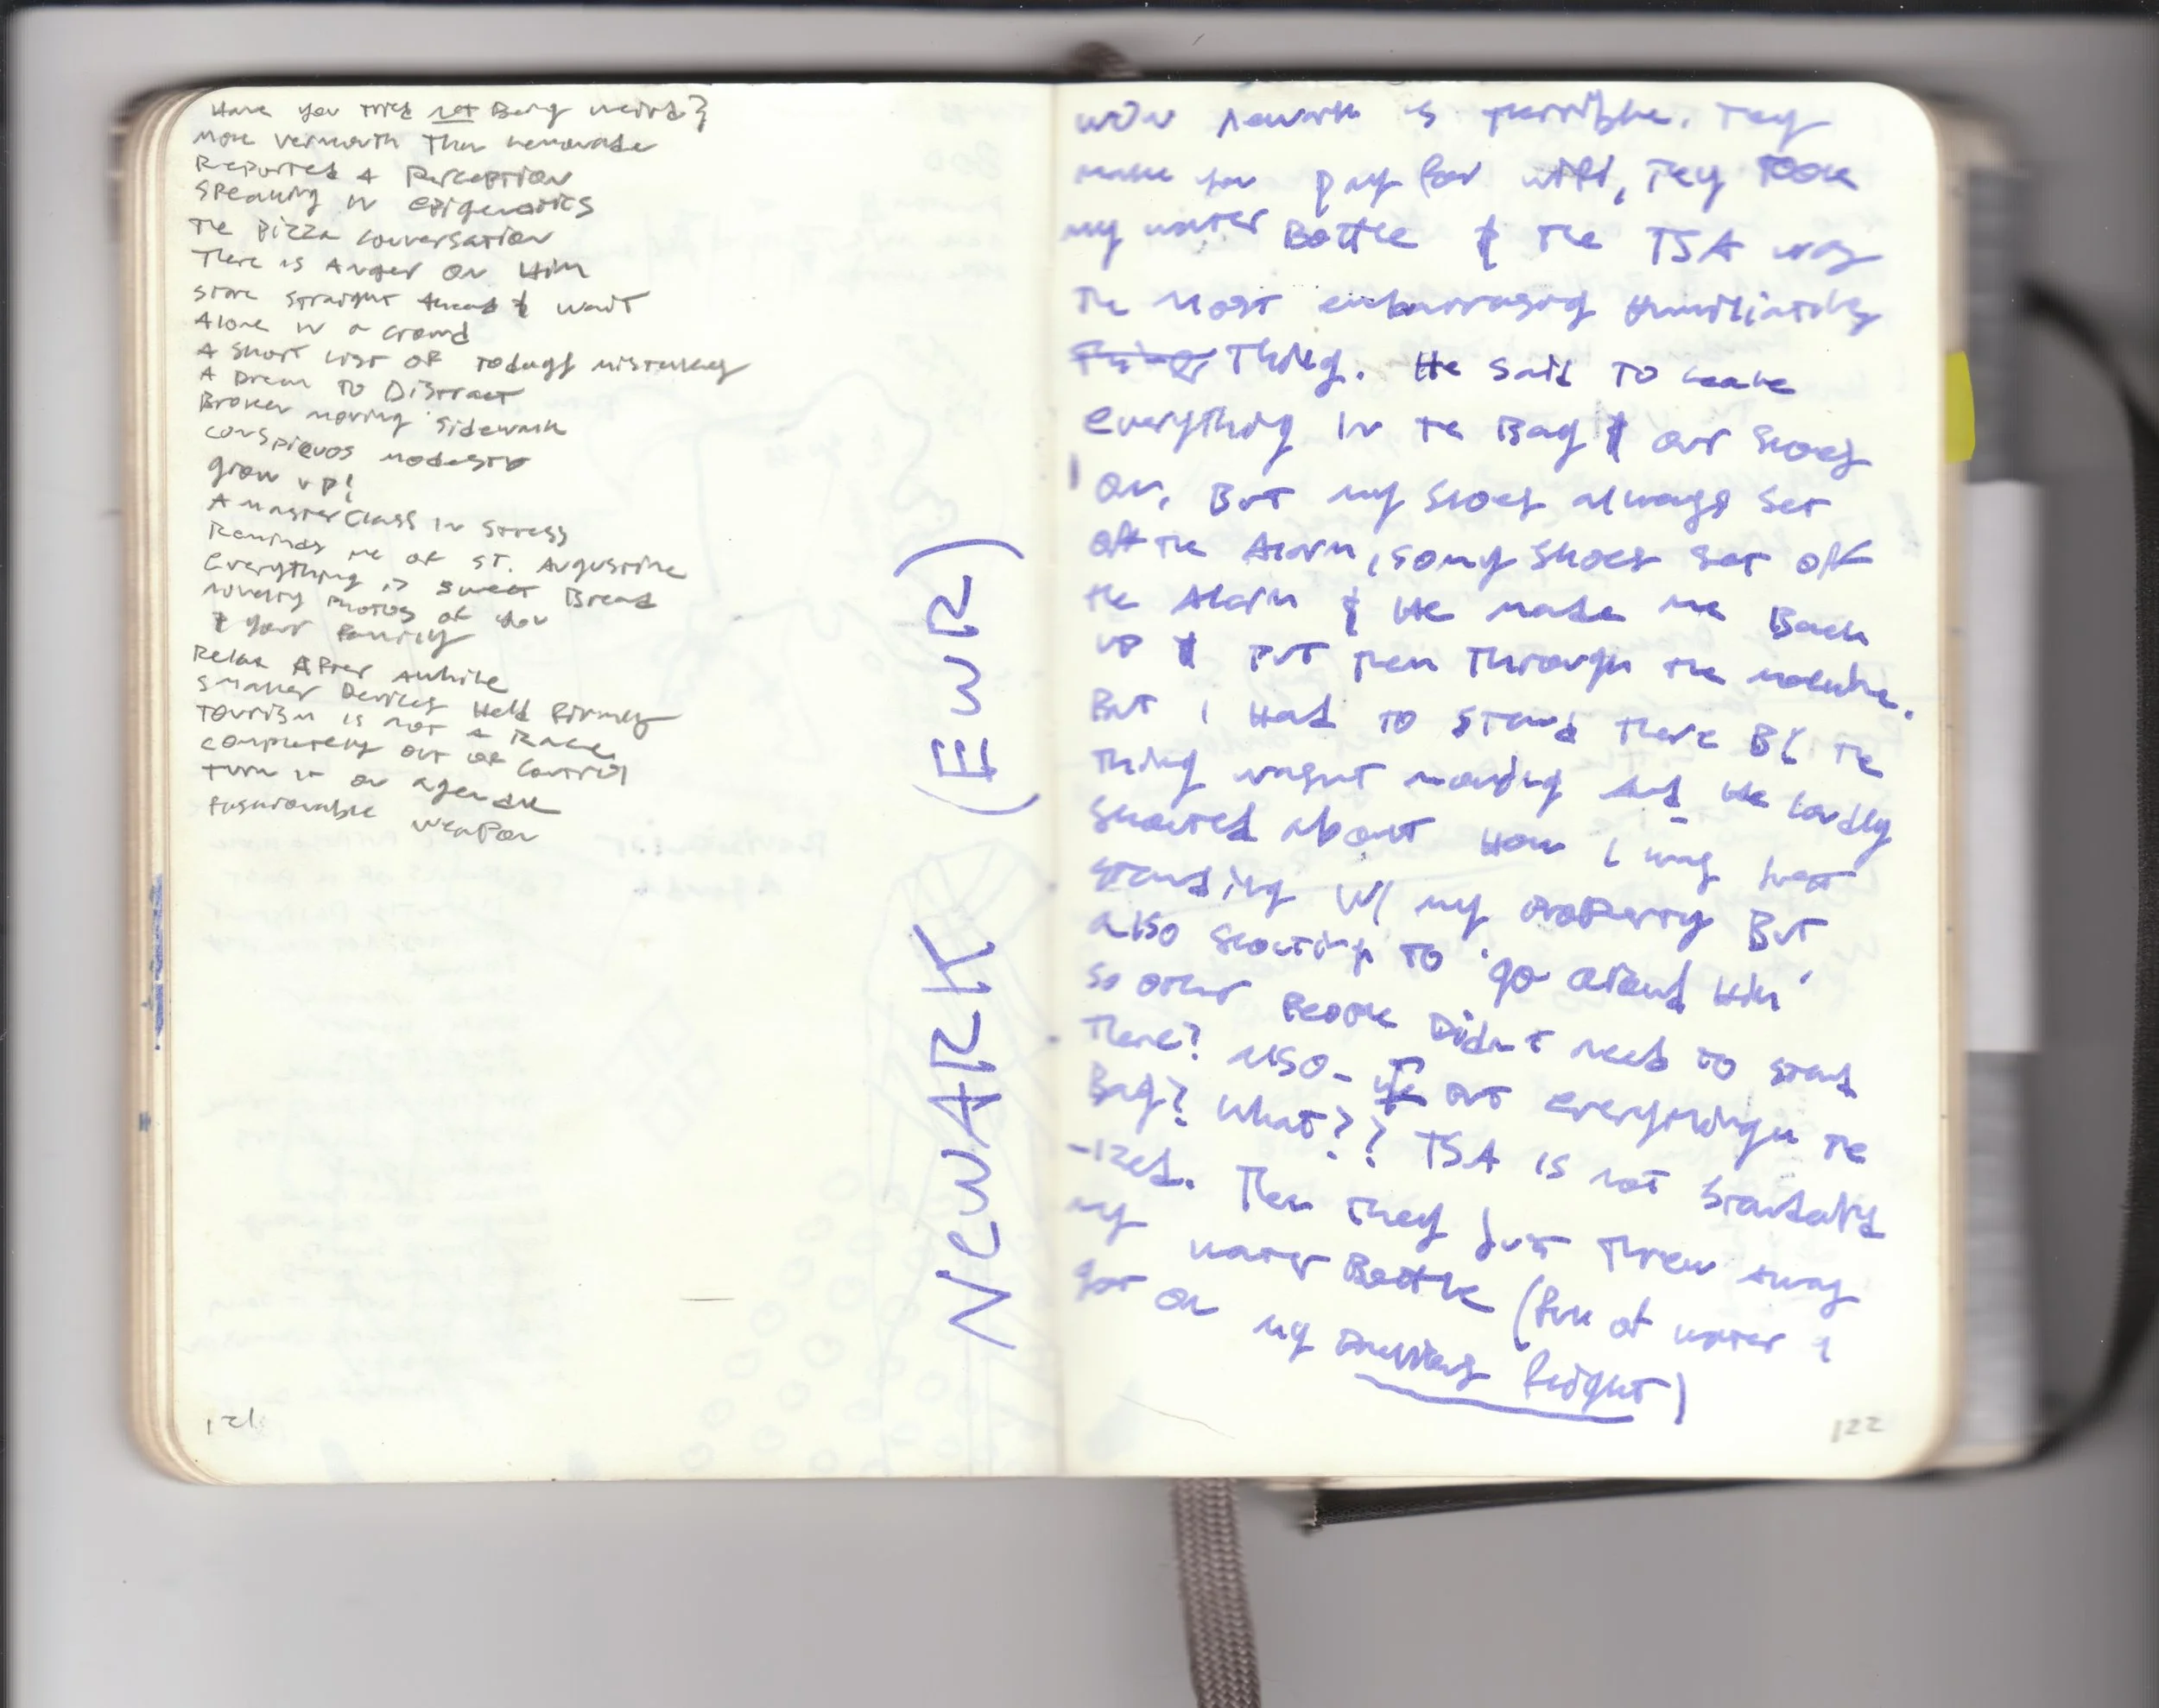 Have you tried not Being weird?
More vermouth than lemonade
Reported & Perception
Speaking in epigenetics
The Pizza conversation
There is Anger on Him
Stare straight Ahead & wait
Alone in a crowd
A short list of today's mistakes
A Dream to Distract
Broken moving sidewalk
conspicuos modesty
Grow up!
A masterclass in stress
Reminds me of St. Augustine
Everything is sweet Bread
novelty photos of you
& your family
Relax After awhile
Smaller Devices Held firmly
Tourism is not a Race
completely out of control
turn in an agenda
fashionable weapon
121
NewARK (EWR)
wow newark is terrible. They
make you pay for wifi, they took
my water Bottle & the TSA was
the most embarrasing Humiliating
Thing Thing. He said to leave
everything in the Bag & our shoes
on, But my shoes always set
off the Alarm, so my shoes set off
the Alarm & He made me Back
up & put them through the machine.
But I Had to stand there B/c the
thing wasn't moving and He loudly
shouted about How I was not
standing w/ my property But
also shouting to "go around Him"
so other people Didn't need to stand
there? Also - put everything in the
Bag? What?? TSA is not standard
-ized. Then they just threw away
my water Bottle (full of water I
got on my previous flight)
122